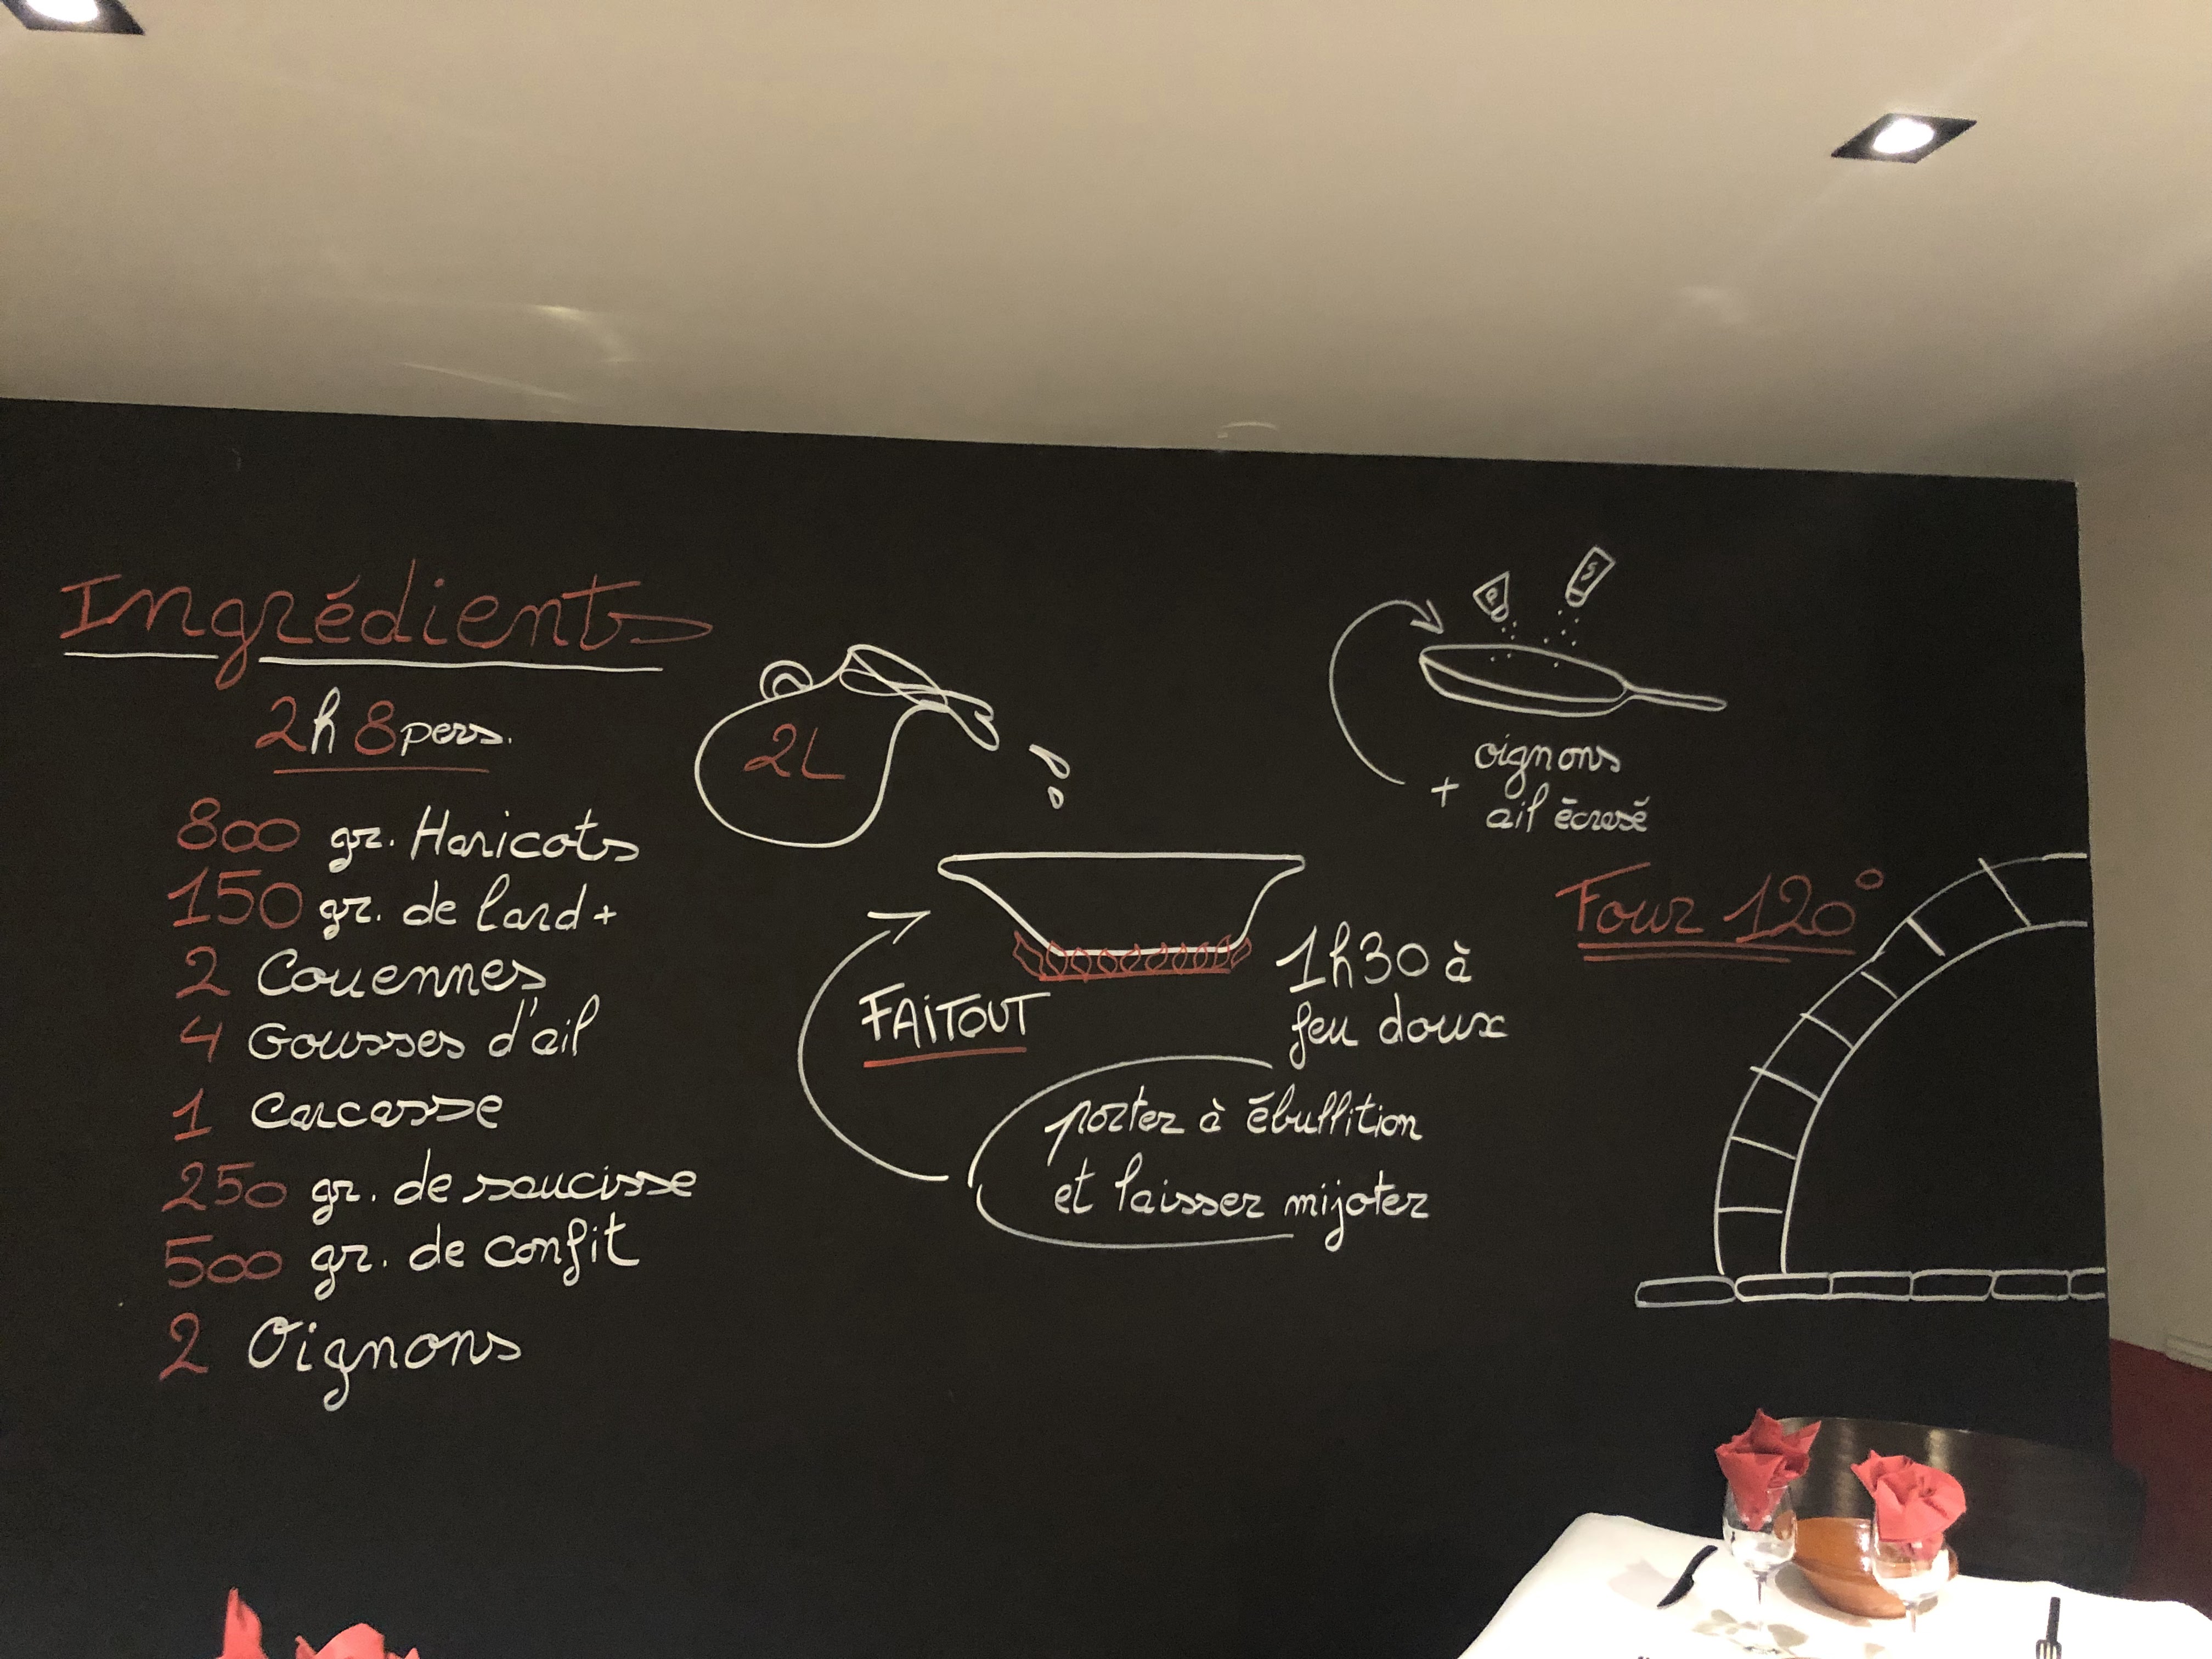 Ingrédients
2h 8pers.
800 gr. Haricots
150 gr. de lard +
2 Couennes
4 Gousses d'ail
1 Carcasse
250 gr. de saucisse
500 gr. de confit
2 Oignons
2L
FAITOUT
1h30 à
feu doux
porter à ébullition
et laisser mijoter
P S
oignons
+ ail écrasé
Four 120°